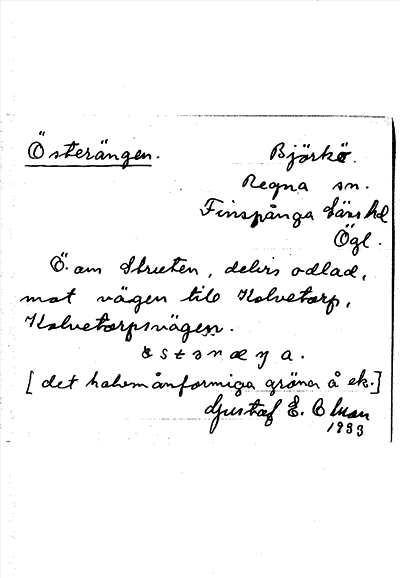 Österängen.
Björkö.
Regna sn.
Finspånga läns hd
Ögl.
Ö. om Struten, delvis odlad,
mot vägen till Kolvetorp,
Kolvetorpsvägen.
[det halvmånformiga gröna å ek.]
Gustaf E. Olsson
1933